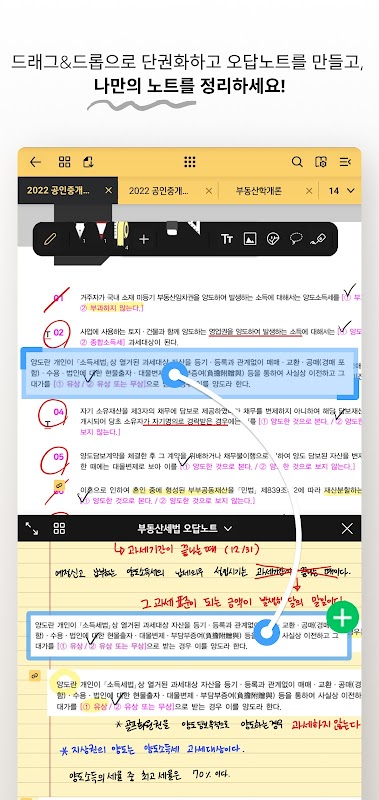 드래그&드롭으로 단권화하고 오답노트를 만들고,
나만의 노트를 정리하세요!
2022 공인중개... × 2022 공인중개... × 부동산학개론 × 14
1 1 4
Tт
01 거주자가 국내 소재 미등기 부동산임차권을 양도하여 발생하는 소득에 대해서는 양도소득세를 [①
② 부과하지 않는다.]
02 사업에 사용하는 토지·건물과 함께 양도하는 영업권을 양도하여 발생하는 소득에 대해서는 [①
② 종합소득세] 과세대상이 된다.
양도란 개인이 「소득세법」상 열거된 과세대상 자산을 등기·등록과 관계없이 매매·교환·공매(경매 포
함)·수용·법인에 대한 현물출자·대물변제·부담부증여(負擔附贈與) 등을 통하여 사실상 이전하고 그
대가를 [① 유상 / ② 유상 또는 무상]으로 받는 경우 이를 양도라 한다.
04 자기 소유재산을 제3자의 채무에 담보로 제공하였 채무를 변제하지 아니하여 해당 담보자산
개시되어 당초 소유자가 자기명의로 경락받은 경우에는 이를 [① 양도한 것으로 본다. / ② 양도한 것
보지 않는다.]
05 양도담보계약을 체결한 후 그 계약을 위배하거나 채무불이행으로 하여 양도 담보된 자산을 변
한 때에는 대물변제로 보아 이를 [① 양도한 것으로 본다. / ② 양도한 것으로 보지 않는다.]
이혼으로 인하여 혼인 중에 형성된 부부공동재산을 「민법」 제839조의2에 따라 재산분할하는
양도한 것으로 본다. / ② 양도한 것으로 보지 않는다.]
부동산세법 오답노트
↳ 과세기간이 끝나는 때 (12/31)
예정신고 납부하는 양도소득세의 납세의무 성립시기는 과세기간이 끝나는 때이다.
그 과세표준이 되는 금액이 발생한 달의 말일이다.
양도란 개인이 「소득세법」상 열거된 과세대상 자산을 등기·등록과 관계없이 매매·교환·공매(경매
함)·수용·법인에 대한 현물출자·대물변제·부담부증여(負擔附贈與) 등을 통하여 사실상 이전하고 그
대가를 [① 유상 / ② 유상 또는 무상]으로 받는 경우 이를 양도라 한다.
양도란 개인이 「소득세법」상 열거된 과세대상 자산을 등기·등록과 관계없이 매매·교환·공매(
함)·수용·법인에 대한 현물출자·대물변제·부담부증여(負擔附贈與) 등을 통하여 사실상 이전하
대가를 [① 유상 / ② 유상 또는 무상]으로 받는 경우 이를 양도라 한다.
* 골프회원권을 양도담보목적으로 양도하는 경우 과세하지 않는다
* 지상권의 양도는 양도소득세 과세대상이다.
양도소득의 세율 중 최고 세율은 70%이다.